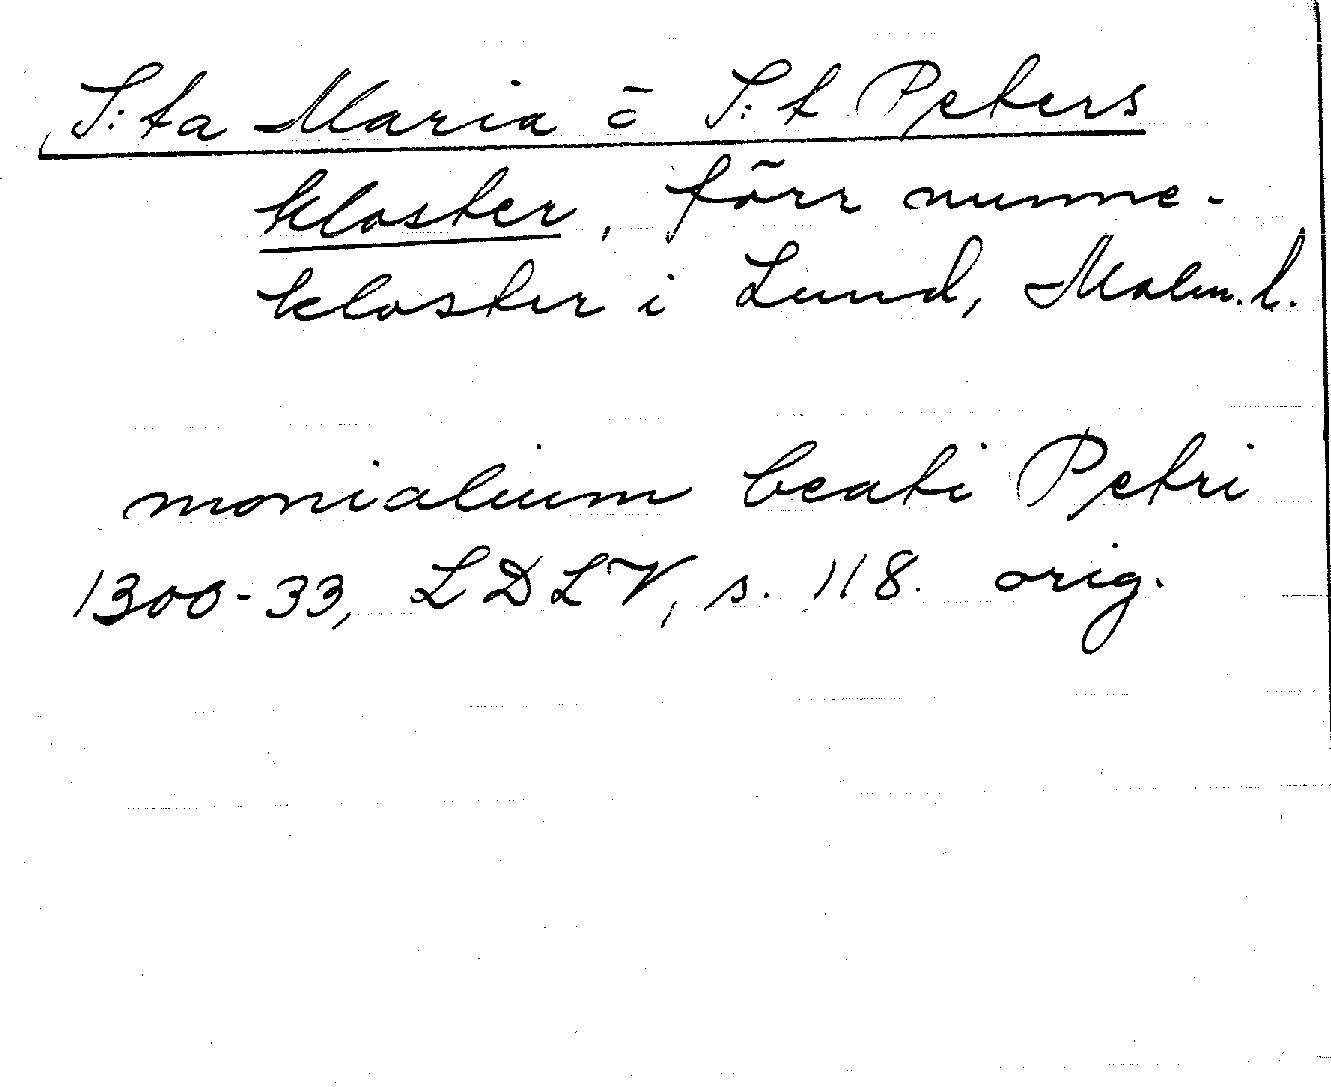 S:ta Maria o S:t Peters
kloster, förr nunne-
kloster i Lund, Malm. l.
monialium beati Petri
1300-33, LDLV, s. 118. orig.